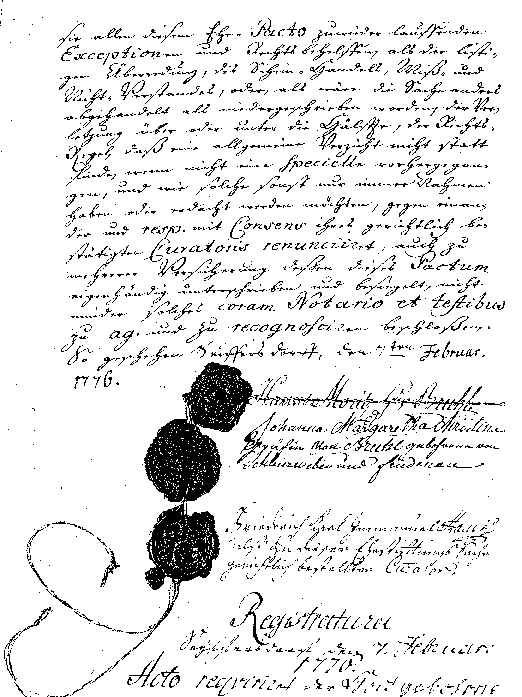 sie allen diesem Ehe Pacto zuwider lauffenden
Exceptionen und Rechtsbehelffen, als der listi-
gen Überredung, des Schein-Handels, Miß- und
Nicht-Verstandes, oder, als wäre die Sache anders
abgehandelt als niedergeschrieben worden, der Ver-
letzung über oder unter die Hälffte, der Rechts-
Regel, daß eine allgemeine Verzicht nicht statt
finde, wenn nicht eine specielle vorhergegan-
gen, und wie solche sonst nur immer Nahmen
haben oder erdacht werden möchten, gegen einan-
der und resp. mit Consens ihres gerichtlich be-
stätigten Curatoris renunciiret, auch zu
mehrerer Versicherung dessen dieses Pactum
eigenhändig unterschrieben und besiegelt, nicht
minder solches coram Notario et testibus
zu ag- und zu recognosciren beschloßen.
So geschehen Seiffersdorff, den 7ten Februar.
1776.
Johanna Margaretha Christina
Gräfin von Brühl gebohrene von
Schleierweber und Friedenau
Friedrich Carl Emmanuel
als zu dieser Ehestifftungs Sache
gerichtlich bestellter Curator
Registratura
den 7. Februar:
1776.
Acto requiriret der